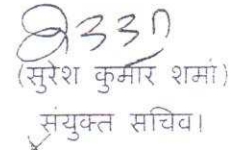 (सुरेश कुमार शर्मा)
संयुक्त सचिव।